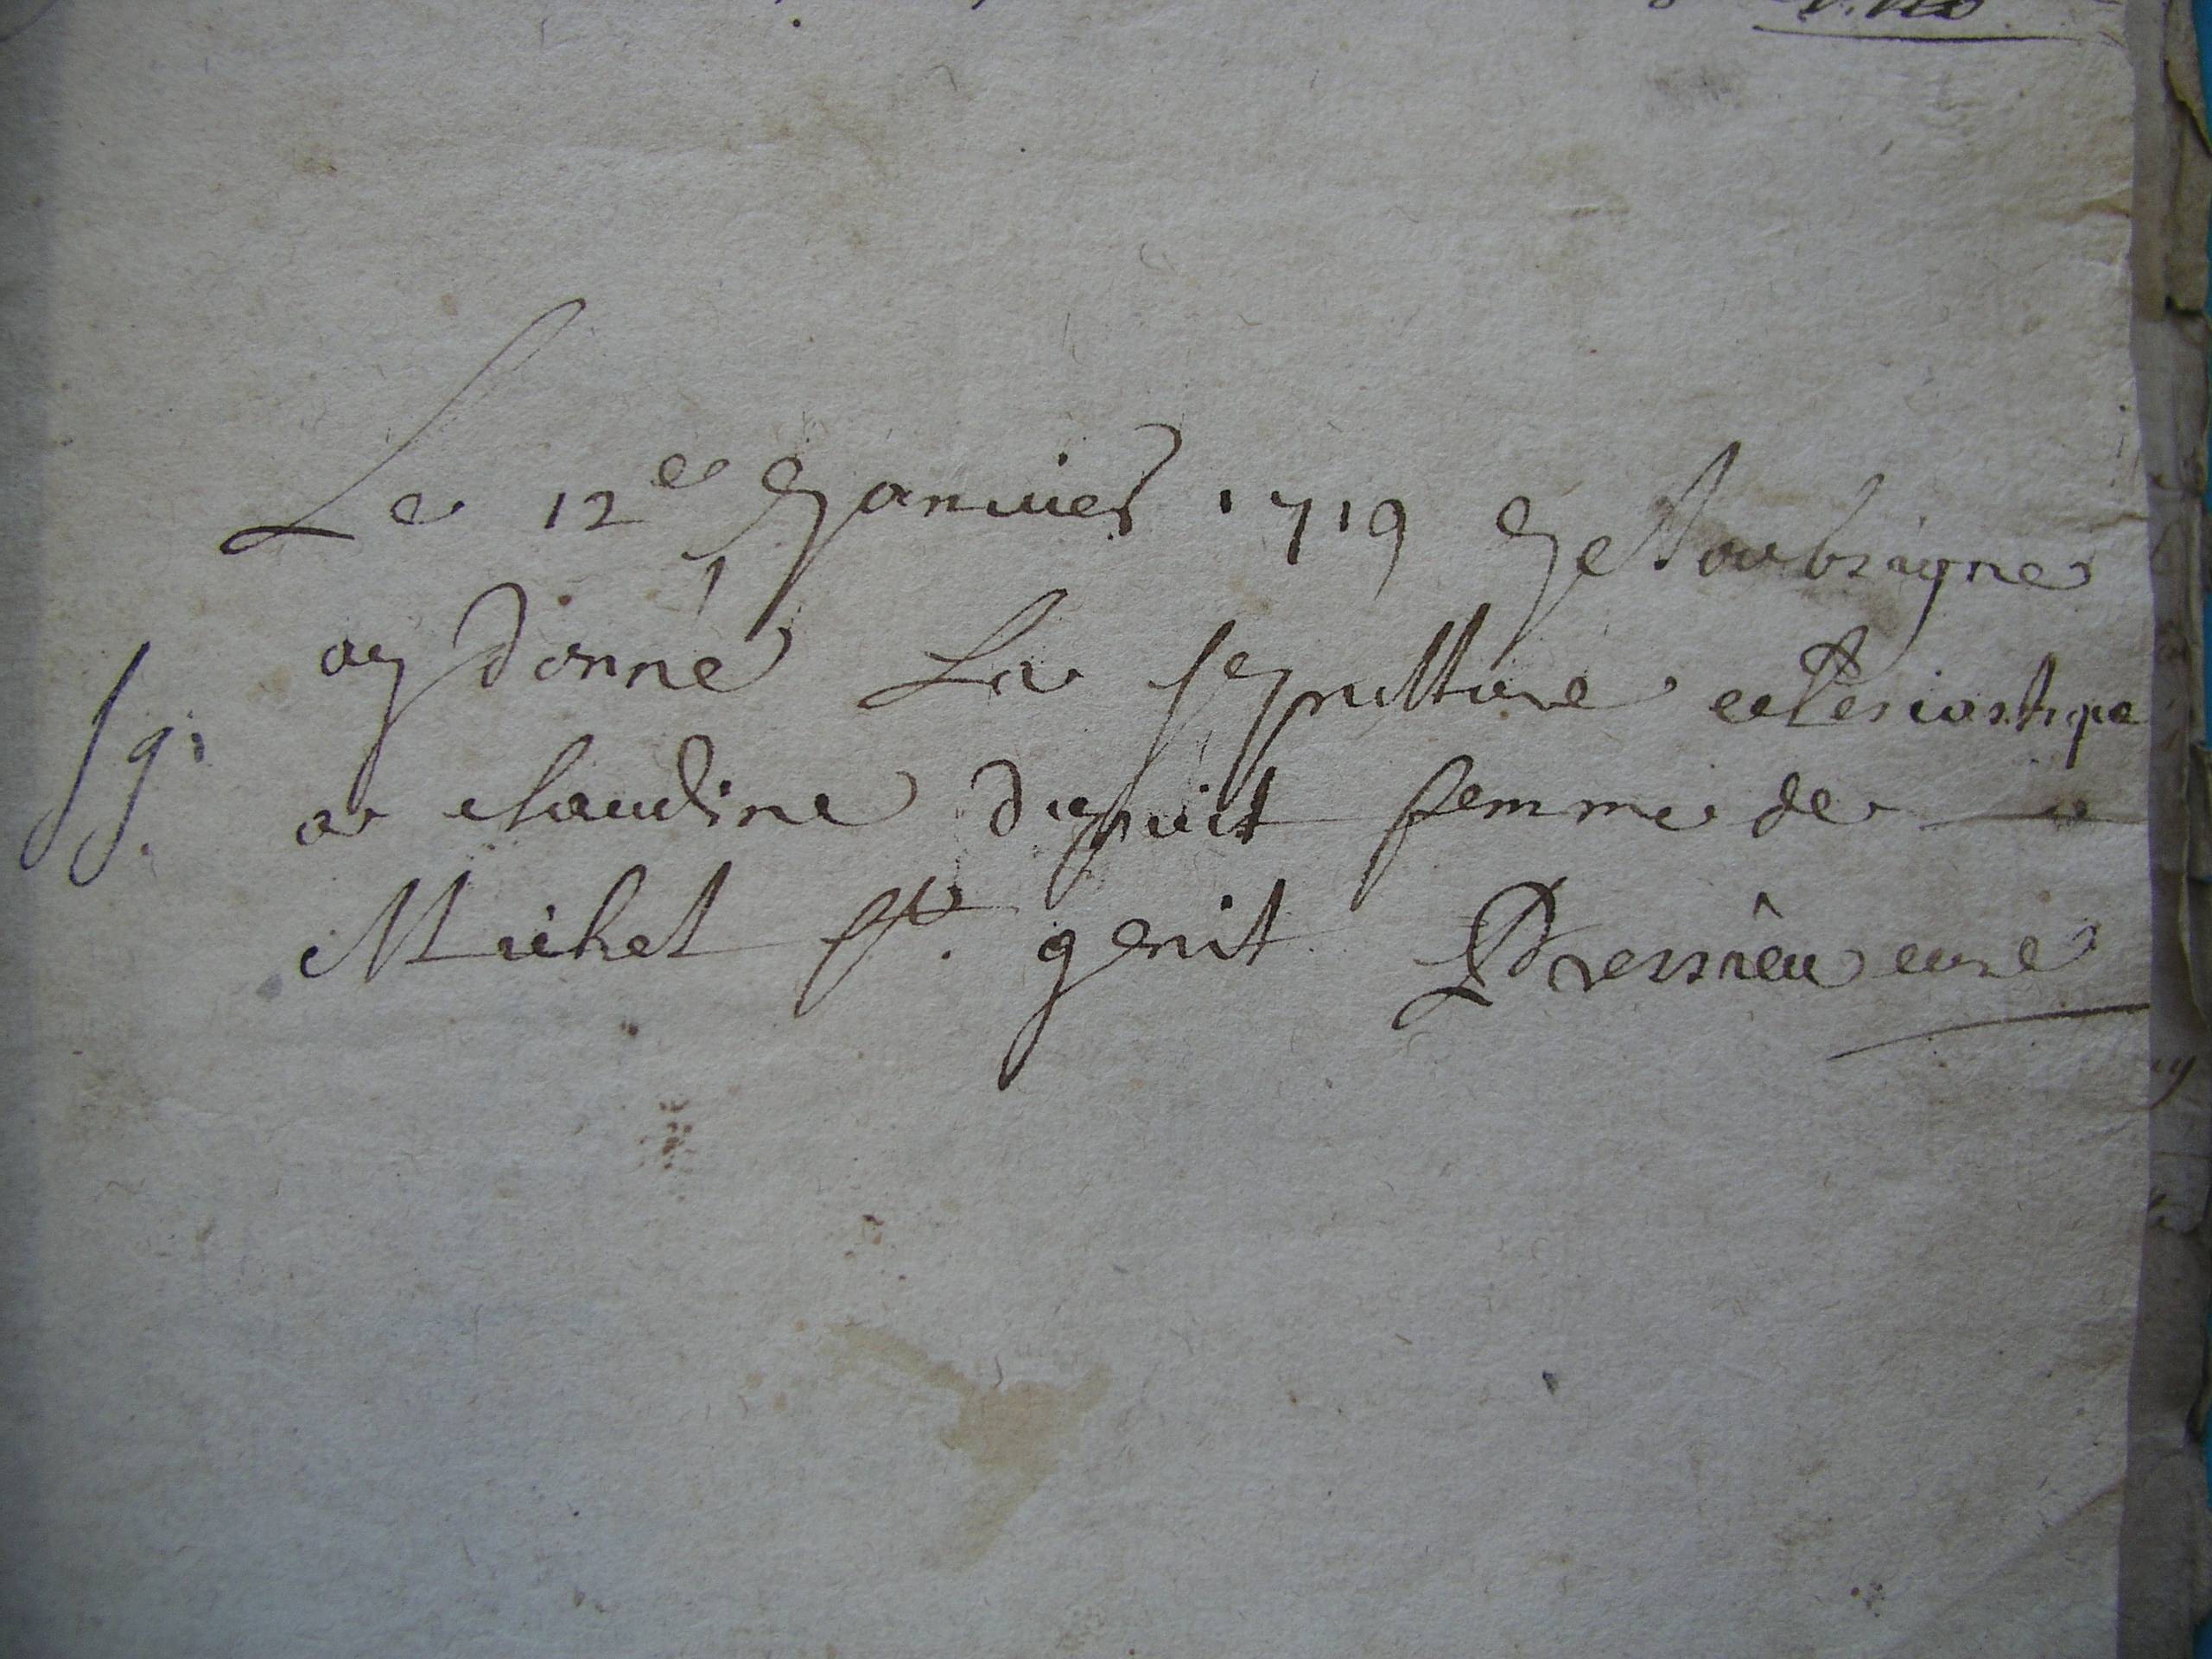 Le 12e Janvier 1719 Je soubsigne
ay donné La sepulture eclesiastique
sg. a claudine dupuit femme de
Michel st. genit Dressieu curé